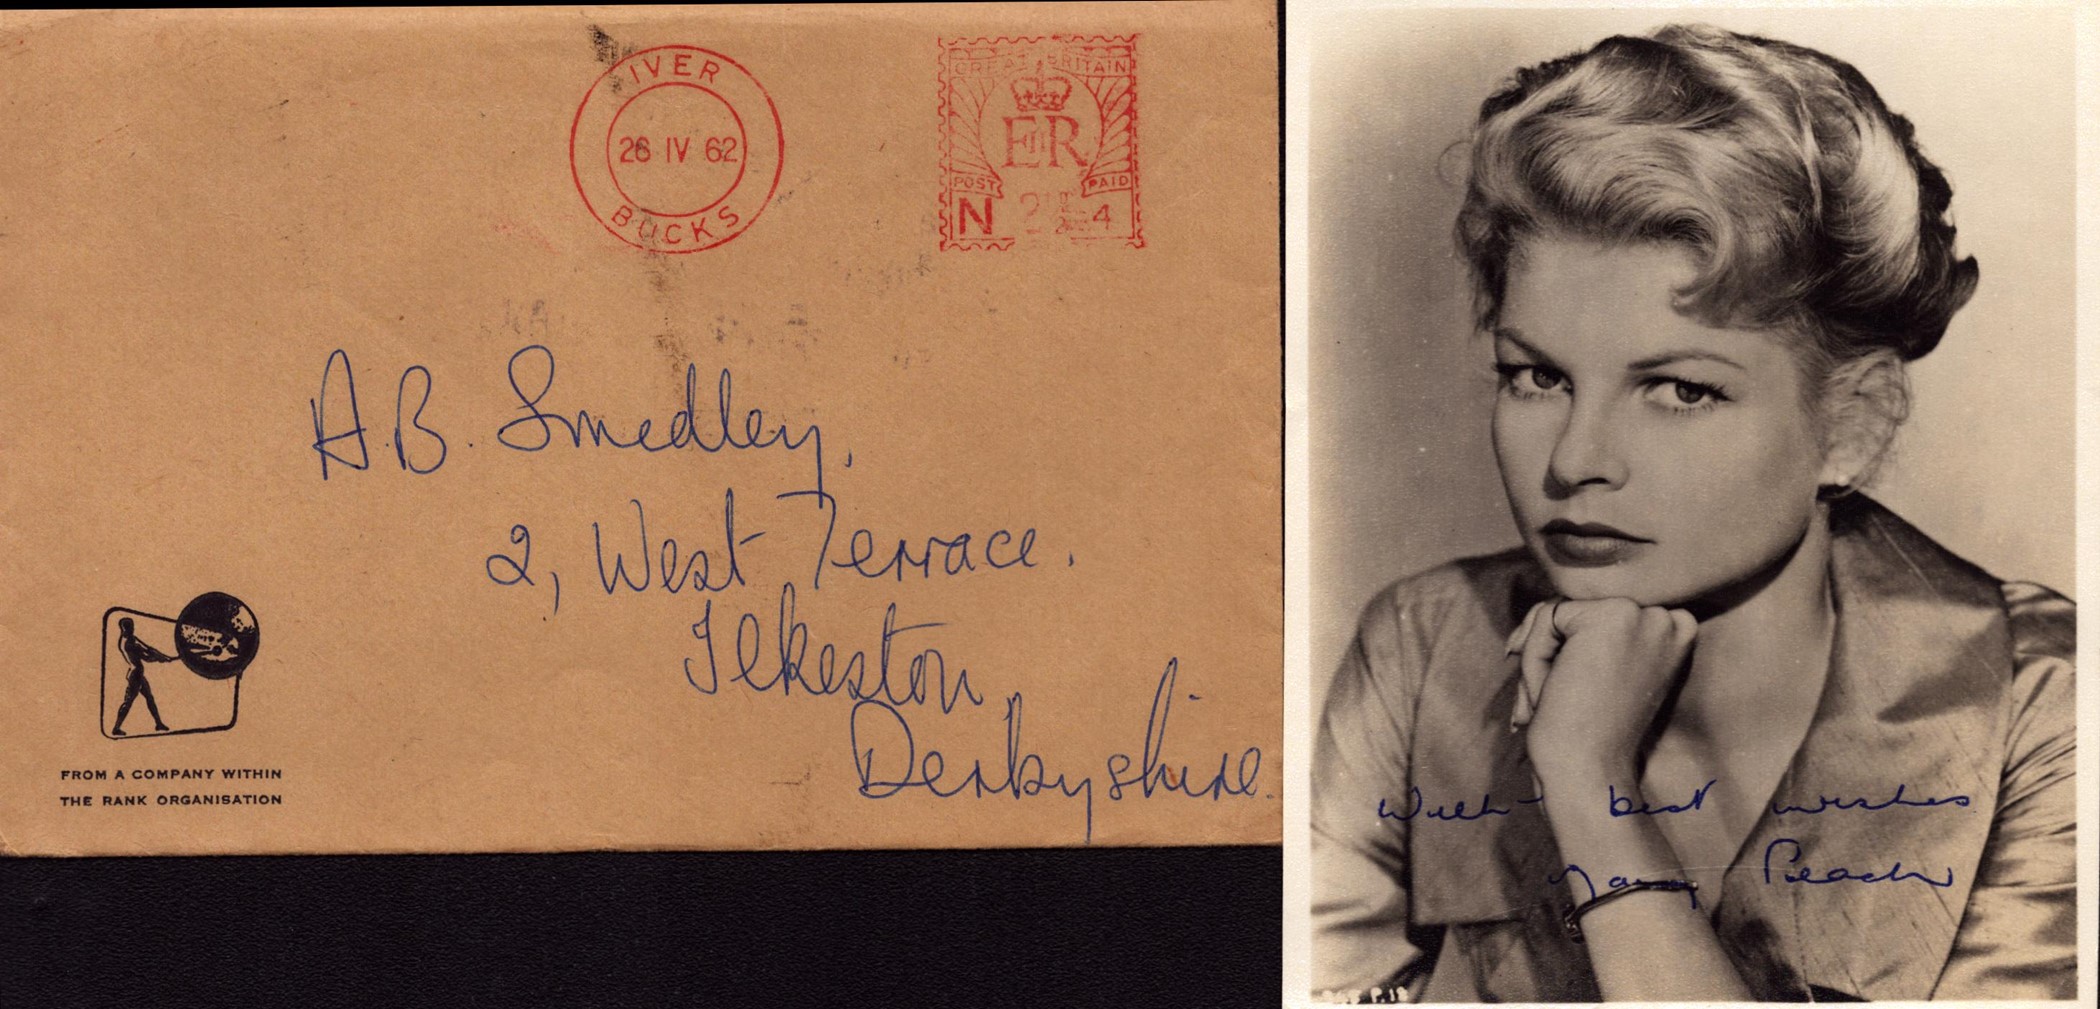 IVER
26 IV 62
BUCKS
GREAT BRITAIN
E II R
POST PAID
N 2 1/2 D 4
A.B. Smedley,
2, West Terrace.
Ilkeston,
Derbyshire.
FROM A COMPANY WITHIN
THE RANK ORGANISATION
With best wishes
Beach
P.18